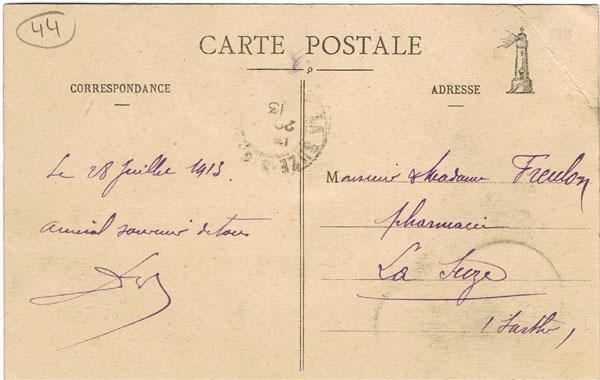 44
CARTE POSTALE
CORRESPONDANCE
ADRESSE
Le 28 Juillet 1913.
Amical souvenir de tous
Monsieur & Madame Freulon
pharmacie
La Suze
(Sarthe)
LA SUZE-S
13